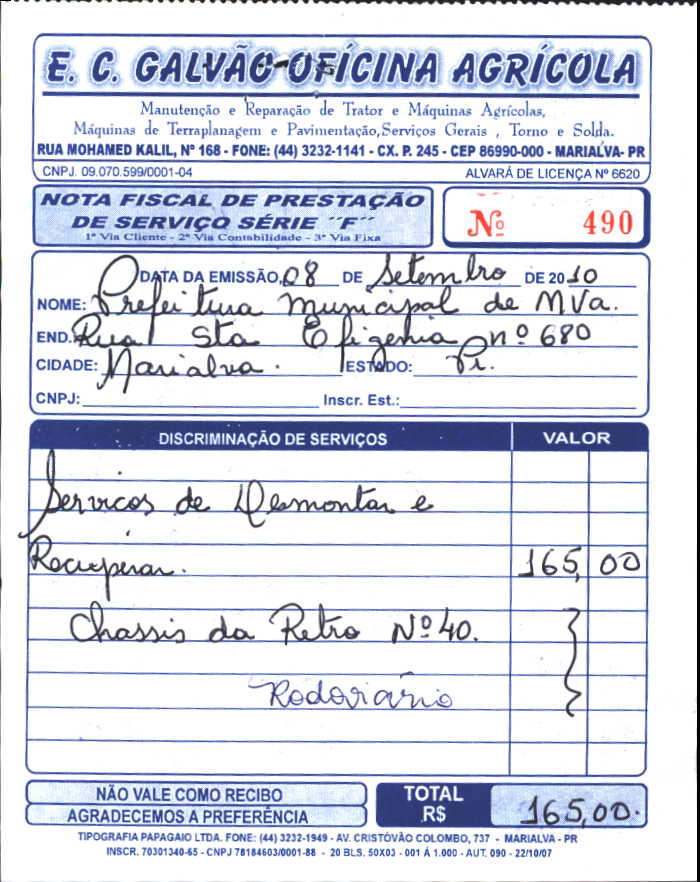 E. C. GALVÃO-OFÍCINA AGRÍCOLA
Manutenção e Reparação de Trator e Máquinas Agrícolas,
Máquinas de Terraplanagem e Pavimentação,Serviços Gerais , Torno e Solda.
RUA MOHAMED KALIL, Nº 168 - FONE: (44) 3232-1141 - CX. P. 245 - CEP 86990-000 - MARIALVA- PR
CNPJ. 09.070.599/0001-04 ALVARÁ DE LICENÇA Nº 6620
NOTA FISCAL DE PRESTAÇÃO
DE SERVIÇO SÉRIE ´´F´´
1ª Via Cliente - 2ª Via Contabilidade - 3ª Via Fixa
Nº 490
DATA DA EMISSÃO, 08 DE Setembro DE 2010
NOME: Prefeitura Municipal de MVa.
END. Rua Sta Efigenia nº 680
CIDADE: Marialva. ESTADO: Pr.
CNPJ: Inscr. Est.:
DISCRIMINAÇÃO DE SERVIÇOS VALOR
Servicos de Desmontar e
Recuperar. 165,00
Chassis da Retro Nº 40.
Rodoviário
NÃO VALE COMO RECIBO
AGRADECEMOS A PREFERÊNCIA
TOTAL R$ 165,00.
TIPOGRAFIA PAPAGAIO LTDA. FONE: (44) 3232-1949 - AV. CRISTÓVÃO COLOMBO, 737 - MARIALVA - PR
INSCR. 70301340-65 - CNPJ 78184603/0001-88 - 20 BLS. 50X03 - 001 Á 1.000 - AUT. 090 - 22/10/07